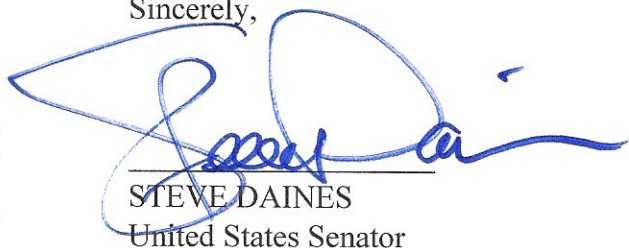 Sincerely,
Steve Daines
STEVE DAINES
United States Senator